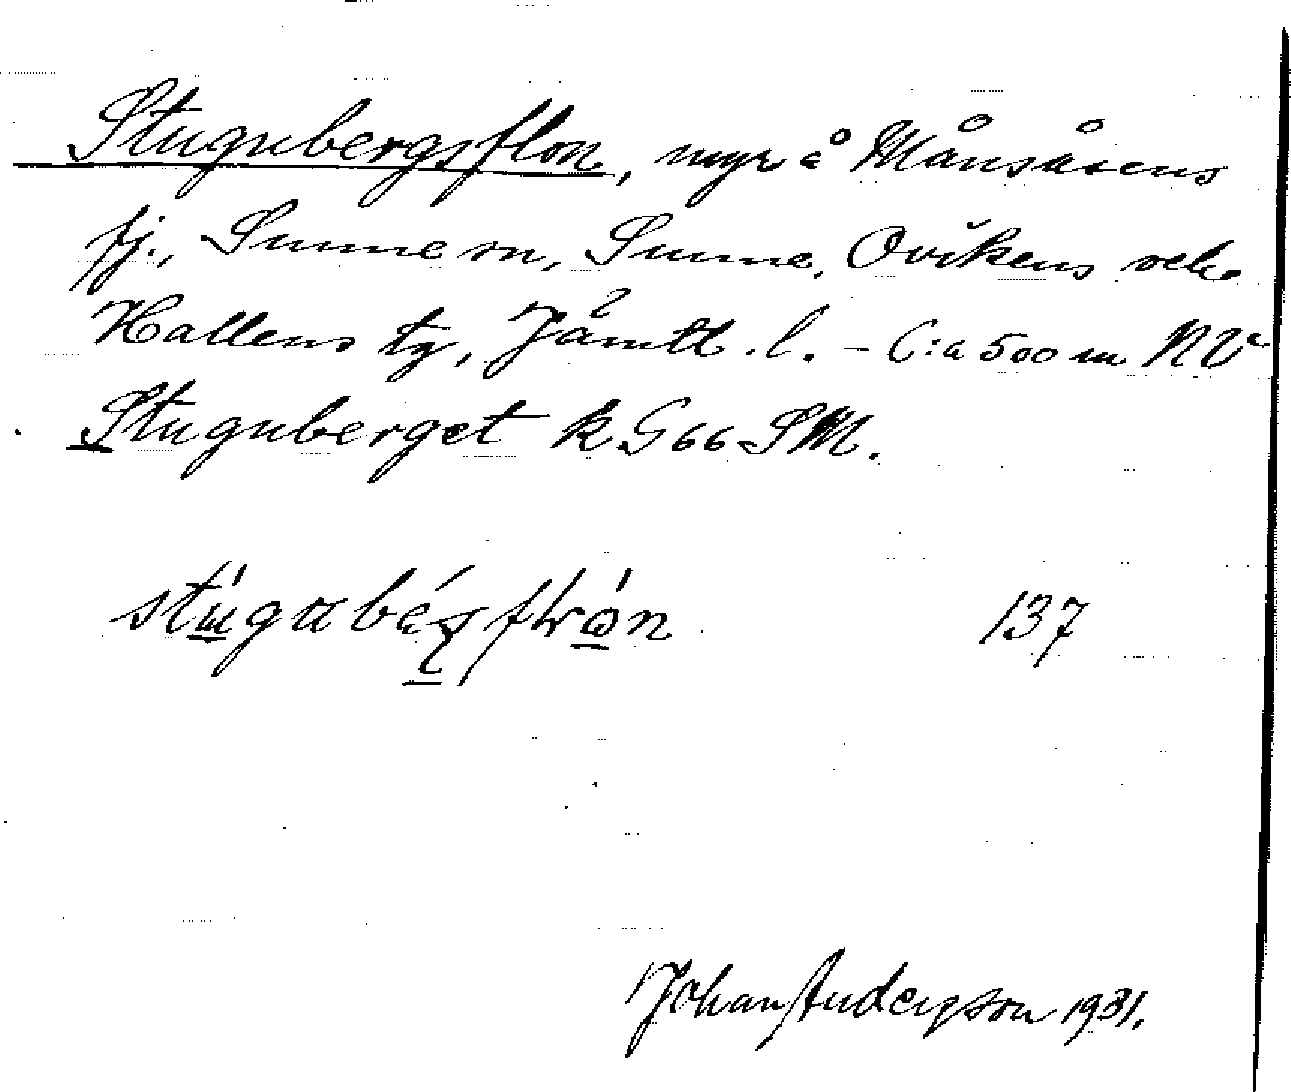 Stugubergsflon, myr å Månsåsens
fj., Sunne sn, Sunne, Ovikens och
Hallens tg, Jämtl. l. – C:a 500 m NV
Stuguberget k G66 SM.
137
Johan Anderşson 1931.